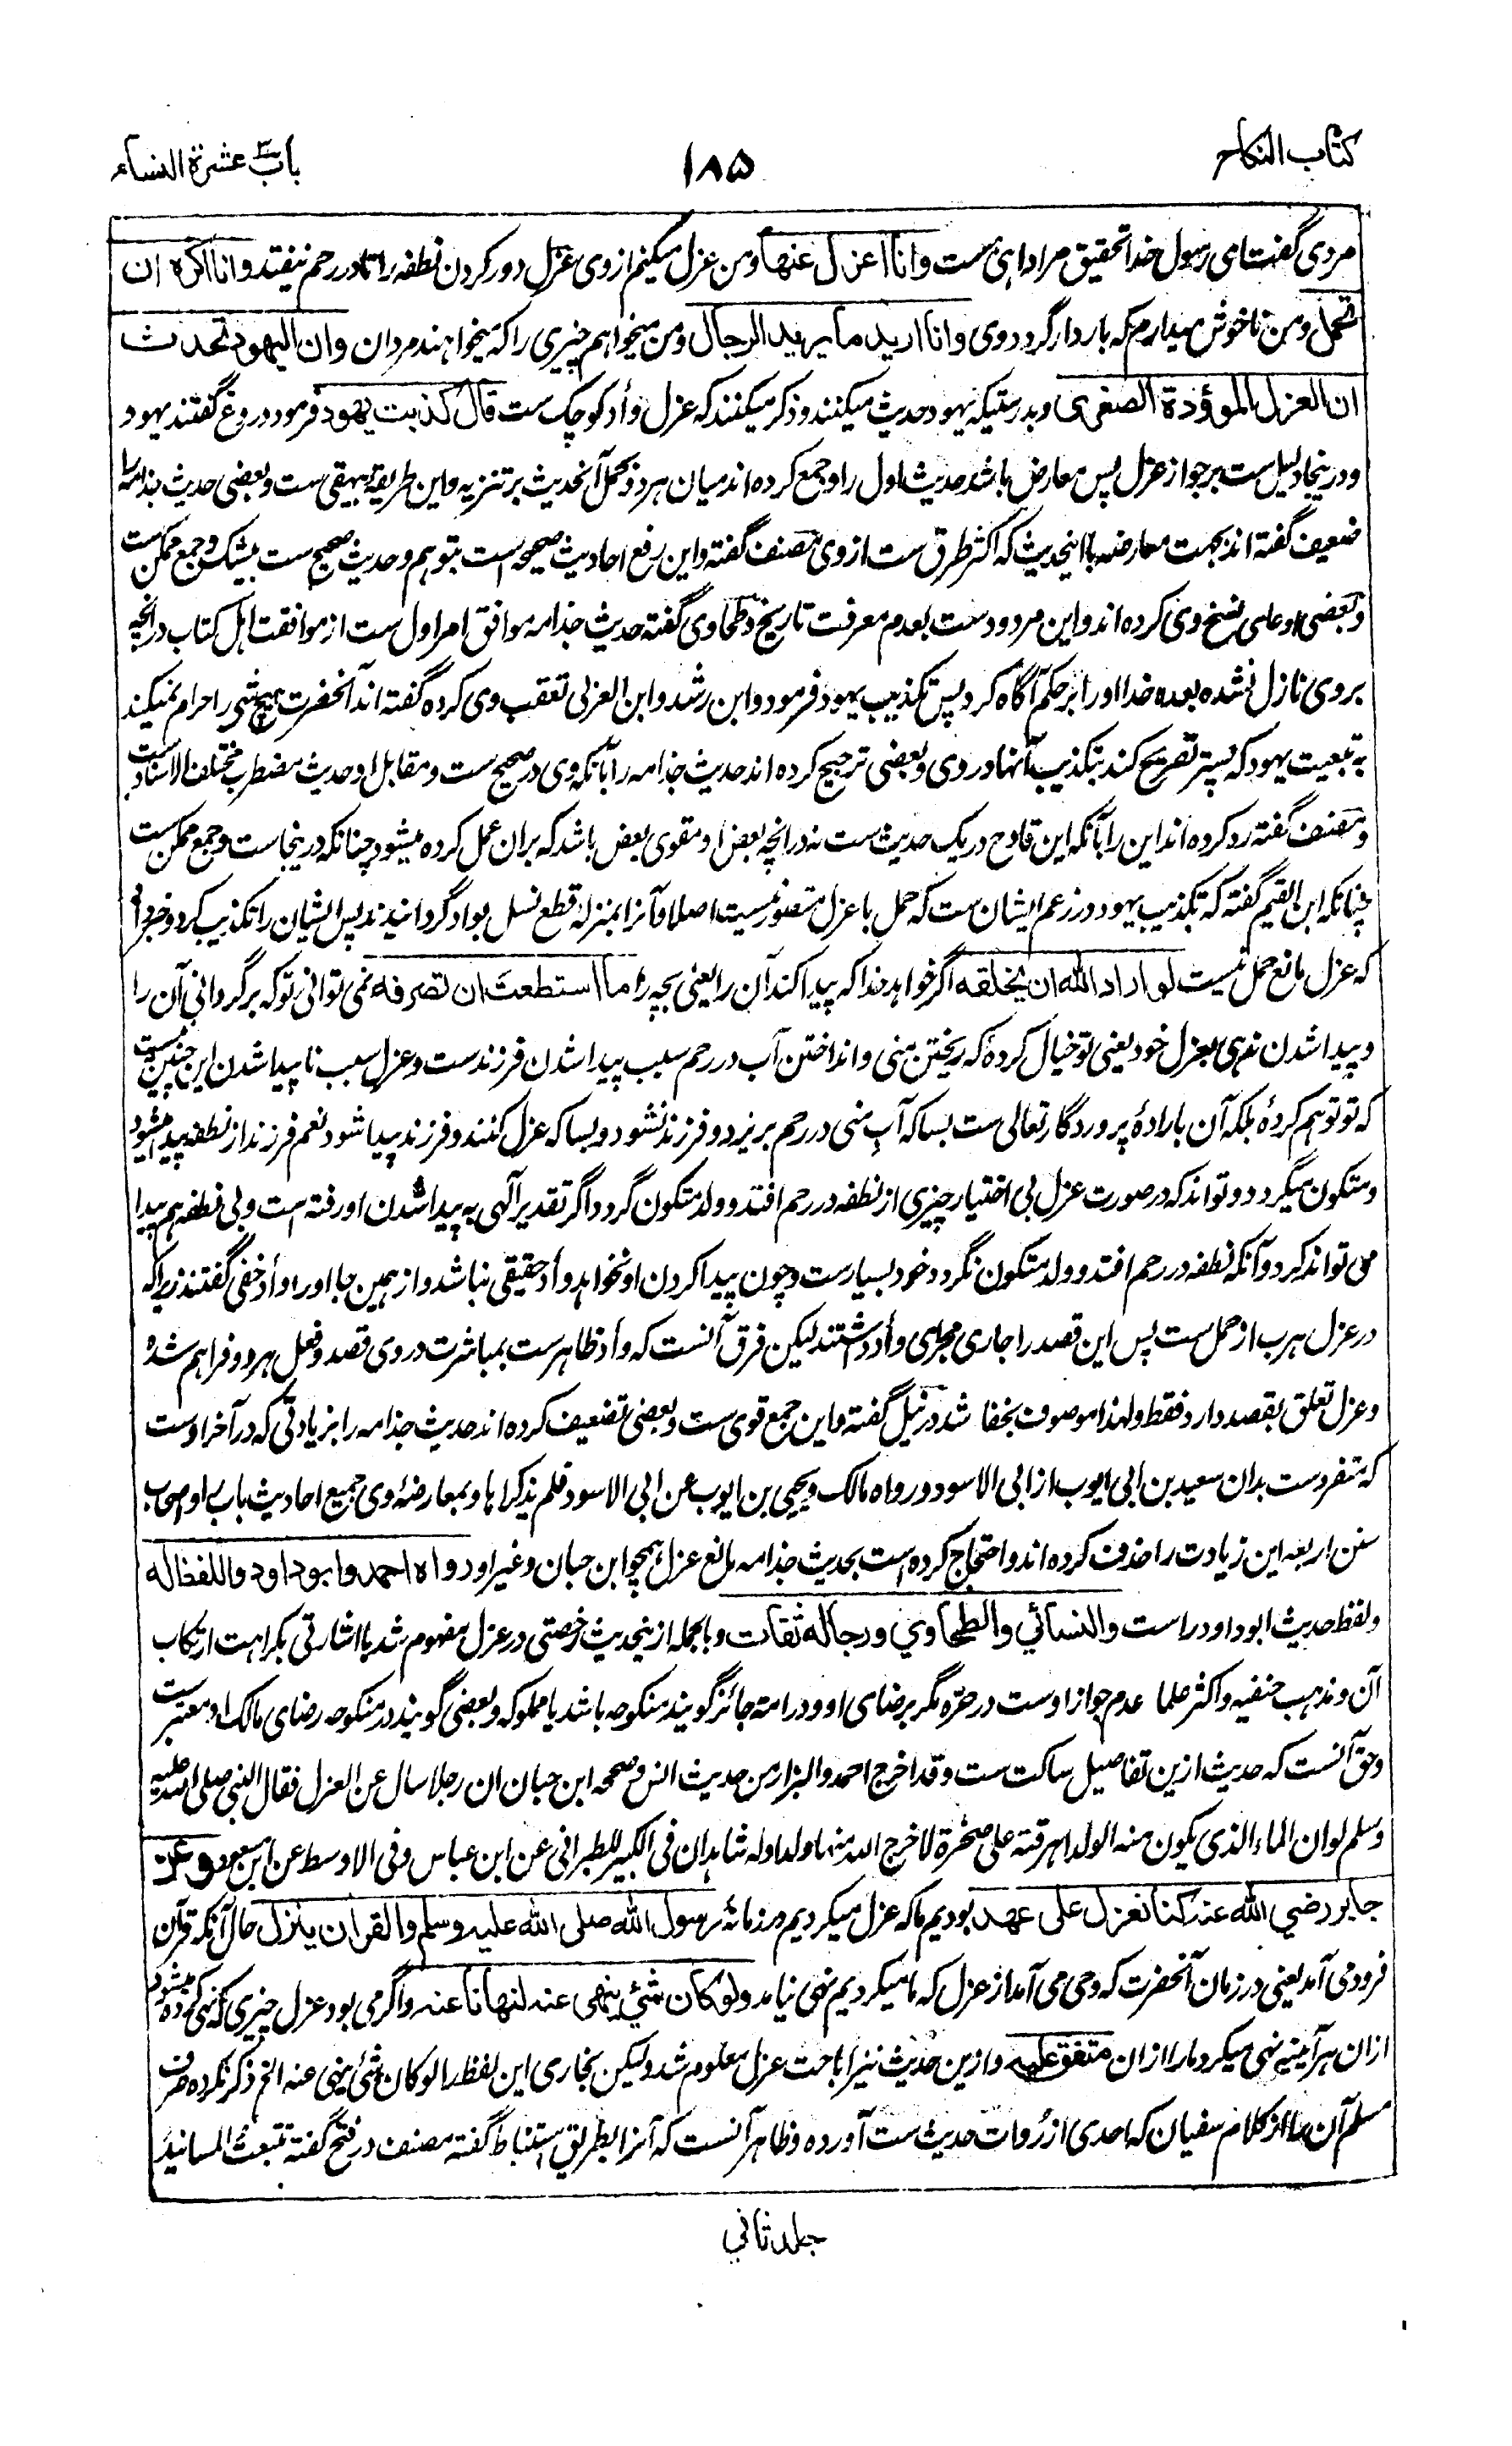 کتاب النکاح
۱۸۵
باب عشرة النساء
مردی گفت ای رسول خدا تحقیق مرا داهی ست وانا اعزل عنها ومن عزل میکنم از وی عزل دور کردن نطفه را تا در رحم نیفتد وانا اکره ان
تحمل ومن ناخوش میدارم که باردار گردد وی وانا ارید ما یرید الرجال ومن میخواهم چیزی را که میخواهند مردان وان الیهود تحدث
ان العزل الموؤدة الصغری وبدرستیکه یهود حدیث میکنند وذکر میکنند که عزل وأد کوچک ست قال کذبت یهود فرمود دروغ گفتند یهود
ودرینجا دلیل ست بر جواز عزل پس معارض باشد حدیث اول را وجمع کرده اند میان هر دو بحمل آنحدیث بر تنزیه واین طریقه بیهقی ست وبعضی حدیث جذامه را
ضعیف گفته اند بجهت معارضه با اینحدیث که اکثر طرق ست از وی مصنف گفته واین رفع احادیث صحیحه است بتوهم وحدیث صحیح ست بیشک وجمع ممکن ست
وبعضی ادعای نسخ وی کرده اند واین مردود ست بعدم معرفت تاریخ وطحاوی گفته حدیث جذامه موافق امر اول ست از موافقت اهل کتاب در انچه
بر وی نازل نشده بعده خدا او را بر حکم آگاه کرد پس تکذیب یهود فرمود وابن رشد وابن العربی تعقب وی کرده گفته اند آنحضرت هیچ شی را حرام نمیکند
به تبعیت یهود که پستر تصریح کند بتکذیب آنها در وی وبعضی ترجیح کرده اند حدیث جذامه را بآنکه وی در صحیح ست ومقابل او حدیث مضطرب مختلف الاسناد ست
ومصنف گفته رد کرده اند این را بآنکه این قادح در یک حدیث ست نه در انچه بعض او مقوی بعض باشد که بران عمل کرده میشود چنانکه درینجاست وجمع ممکن ست
چنانکه ابن القیم گفته که تکذیب یهود در زعم ایشان ست که حمل با عزل متصور نیست اصلا وآنرا بمنزله قطع نسل بواد گردانیدند پس ایشان را تکذیب کرد وخبر داد
که عزل مانع حمل نیست لو اراد الله ان یخلقه اگر خواهد خدا که پیدا کند آن را یعنی بچه را ما استطعت ان تصرفه نمی توانی تو که برگردانی آن را
وپیدا شدن ندهی بعزل خود یعنی تو خیال کرده که ریختن منی وانداختن آب در رحم سبب پیدا شدن فرزند ست وعزل سبب نا پیدا شدن این چنین نیست
که تو توهم کردهٔ بلکه آن بارادهٔ پروردگار تعالی ست بسا که آبِ منی در رحم بریزد وفرزند نشود وبسا که عزل کنند وفرزند پیدا شود نعم فرزند از نطفه پیدا میشود
ومتکون میگردد وتواند که در صورت عزل بی اختیار چیزی از نطفه در رحم افتد وولد متکون گردد اگر تقدیر آلهی به پیدا شدن او رفته است وبی نطفه هم پیدا
می تواند کرد وآنکه نطفه در رحم افتد وولد متکون نگردد خود بسیارست وچون پیدا کردن او نخواهد وأد حقیقی نباشد واز همین جا او را وأد خفی گفتند زیراکه
در عزل هرب از حمل ست پس این قصد را جاری مجرای وأد داشتند لیکن فرق آنست که وأد ظاهر ست بمباشرت در وی قصد وفعل هر دو فراهم شده
وعزل تعلق بقصد دارد فقط ولهذا موصوف بخفا شد در نیل گفته واین جمع قوی ست وبعضی تضعیف کرده اند حدیث جذامه را بزیادتی که در آخر اوست
که متفردست بدان سعید بن ابی ایوب از ابی الاسود ورواه مالک ویحیی بن ایوب عن ابی الاسود فلم یذکراها وبمعارضهٔ وی جمیع احادیث باب را واصحاب
سنن اربعه این زیادت را حذف کرده اند واحتجاج کرده است بحدیث جذامه مانع عزل همچو ابن حبان وغیر او رواه احمد وابو داود واللفظ له
ولفظ حدیث ابو داود راست والنسائي والطحاوي ورجاله ثقات وبالجمله ازینحدیث رخصتی در عزل مفهوم شد با اشارتی بکراهت ارتکاب
آن ومذهب حنفیه واکثر علما عدم جواز اوست در حره مگر برضای او ودر امة جائز گویند منکوحه باشد یا مملوکه وبعضی گویند در منکوحه رضای مالک او معتبر ست
وحق آنست که حدیث ازین تفاصیل ساکت ست وقد اخرج احمد والبزار من حدیث انس وصححه ابن حبان ان رجلا سال عن العزل فقال النبی صلی الله علیه
وسلم لو ان الماء الذی یکون منه الولد اهرقته علی صخرة لاخرج الله منها ولدا وله شاهدان فی الکبیر للطبرانی عن ابن عباس وفی الاوسط عن ابن مسعود وعن
جابر رضي الله عنه کنا نعزل علی عهد بودیم ما که عزل میکردیم در زمانهٔ رسول الله صلی الله علیه وسلم والقران ینزل حال آنکه قرآن
فرود می آمد یعنی در زمان آنحضرت که وحی می آمد از عزل که ما میکردیم نهی نیامد ولو کان شئ ینهی عنه لنهانا عنه واگر می بود عزل چیزی که نهی کرده میشود
ازان هرآئینه نهی میکرد ما را ازان متفق علیه وازین حدیث نیز اباحت عزل معلوم شد ولیکن بخاری این لفظ را لو کان شئ ینهی عنه الخ ذکر نکرده صرف
مسلم آن را از کلام سفیان که احدی از رُوات حدیث ست آورده وظاهر آنست که آنرا بطریق استنباط گفته مصنف در فتح گفته تتبعت المسانید
جلد ثانی